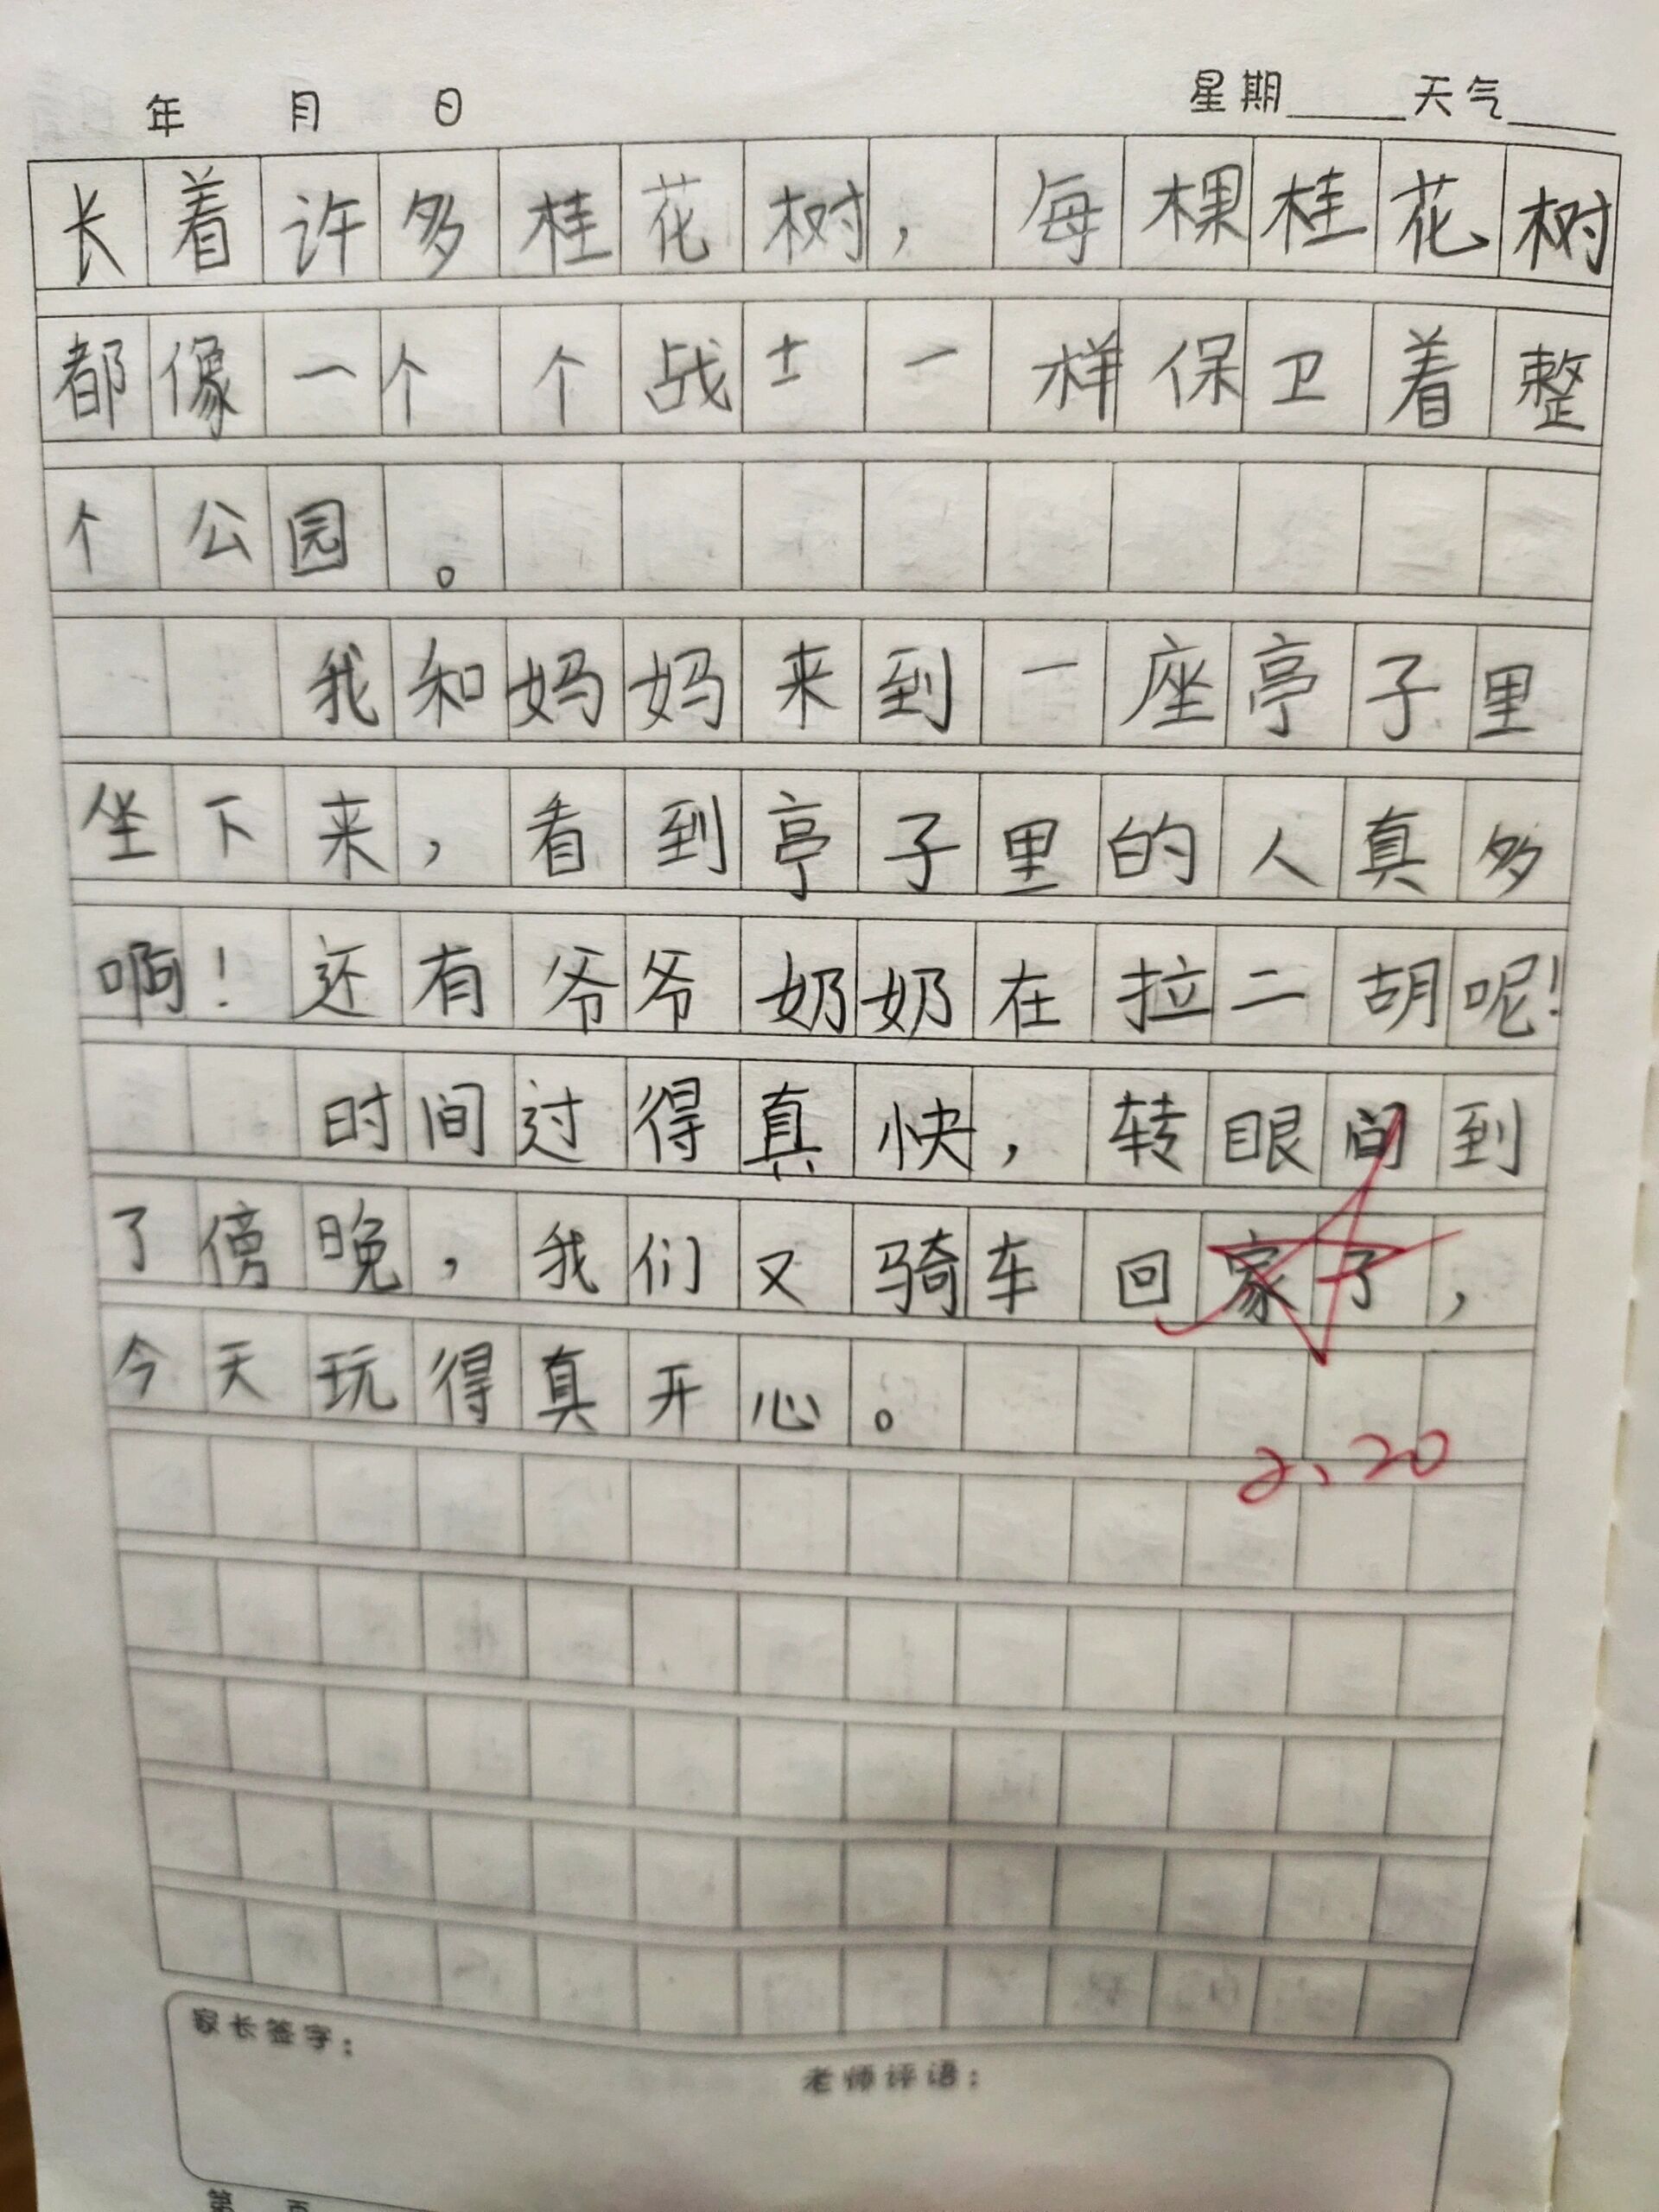 年 月 日 星期____天气____
长着许多桂花树，每棵桂花树
都像一个个战士一样保卫着整
个公园。
我和妈妈来到一座亭子里
坐下来，看到亭子里的人真多
啊！还有爷爷奶奶在拉二胡呢！
时间过得真快，转眼间到
了傍晚，我们又骑车回家了，
今天玩得真开心。
2、20
家长签字：
老师评语：
第 页